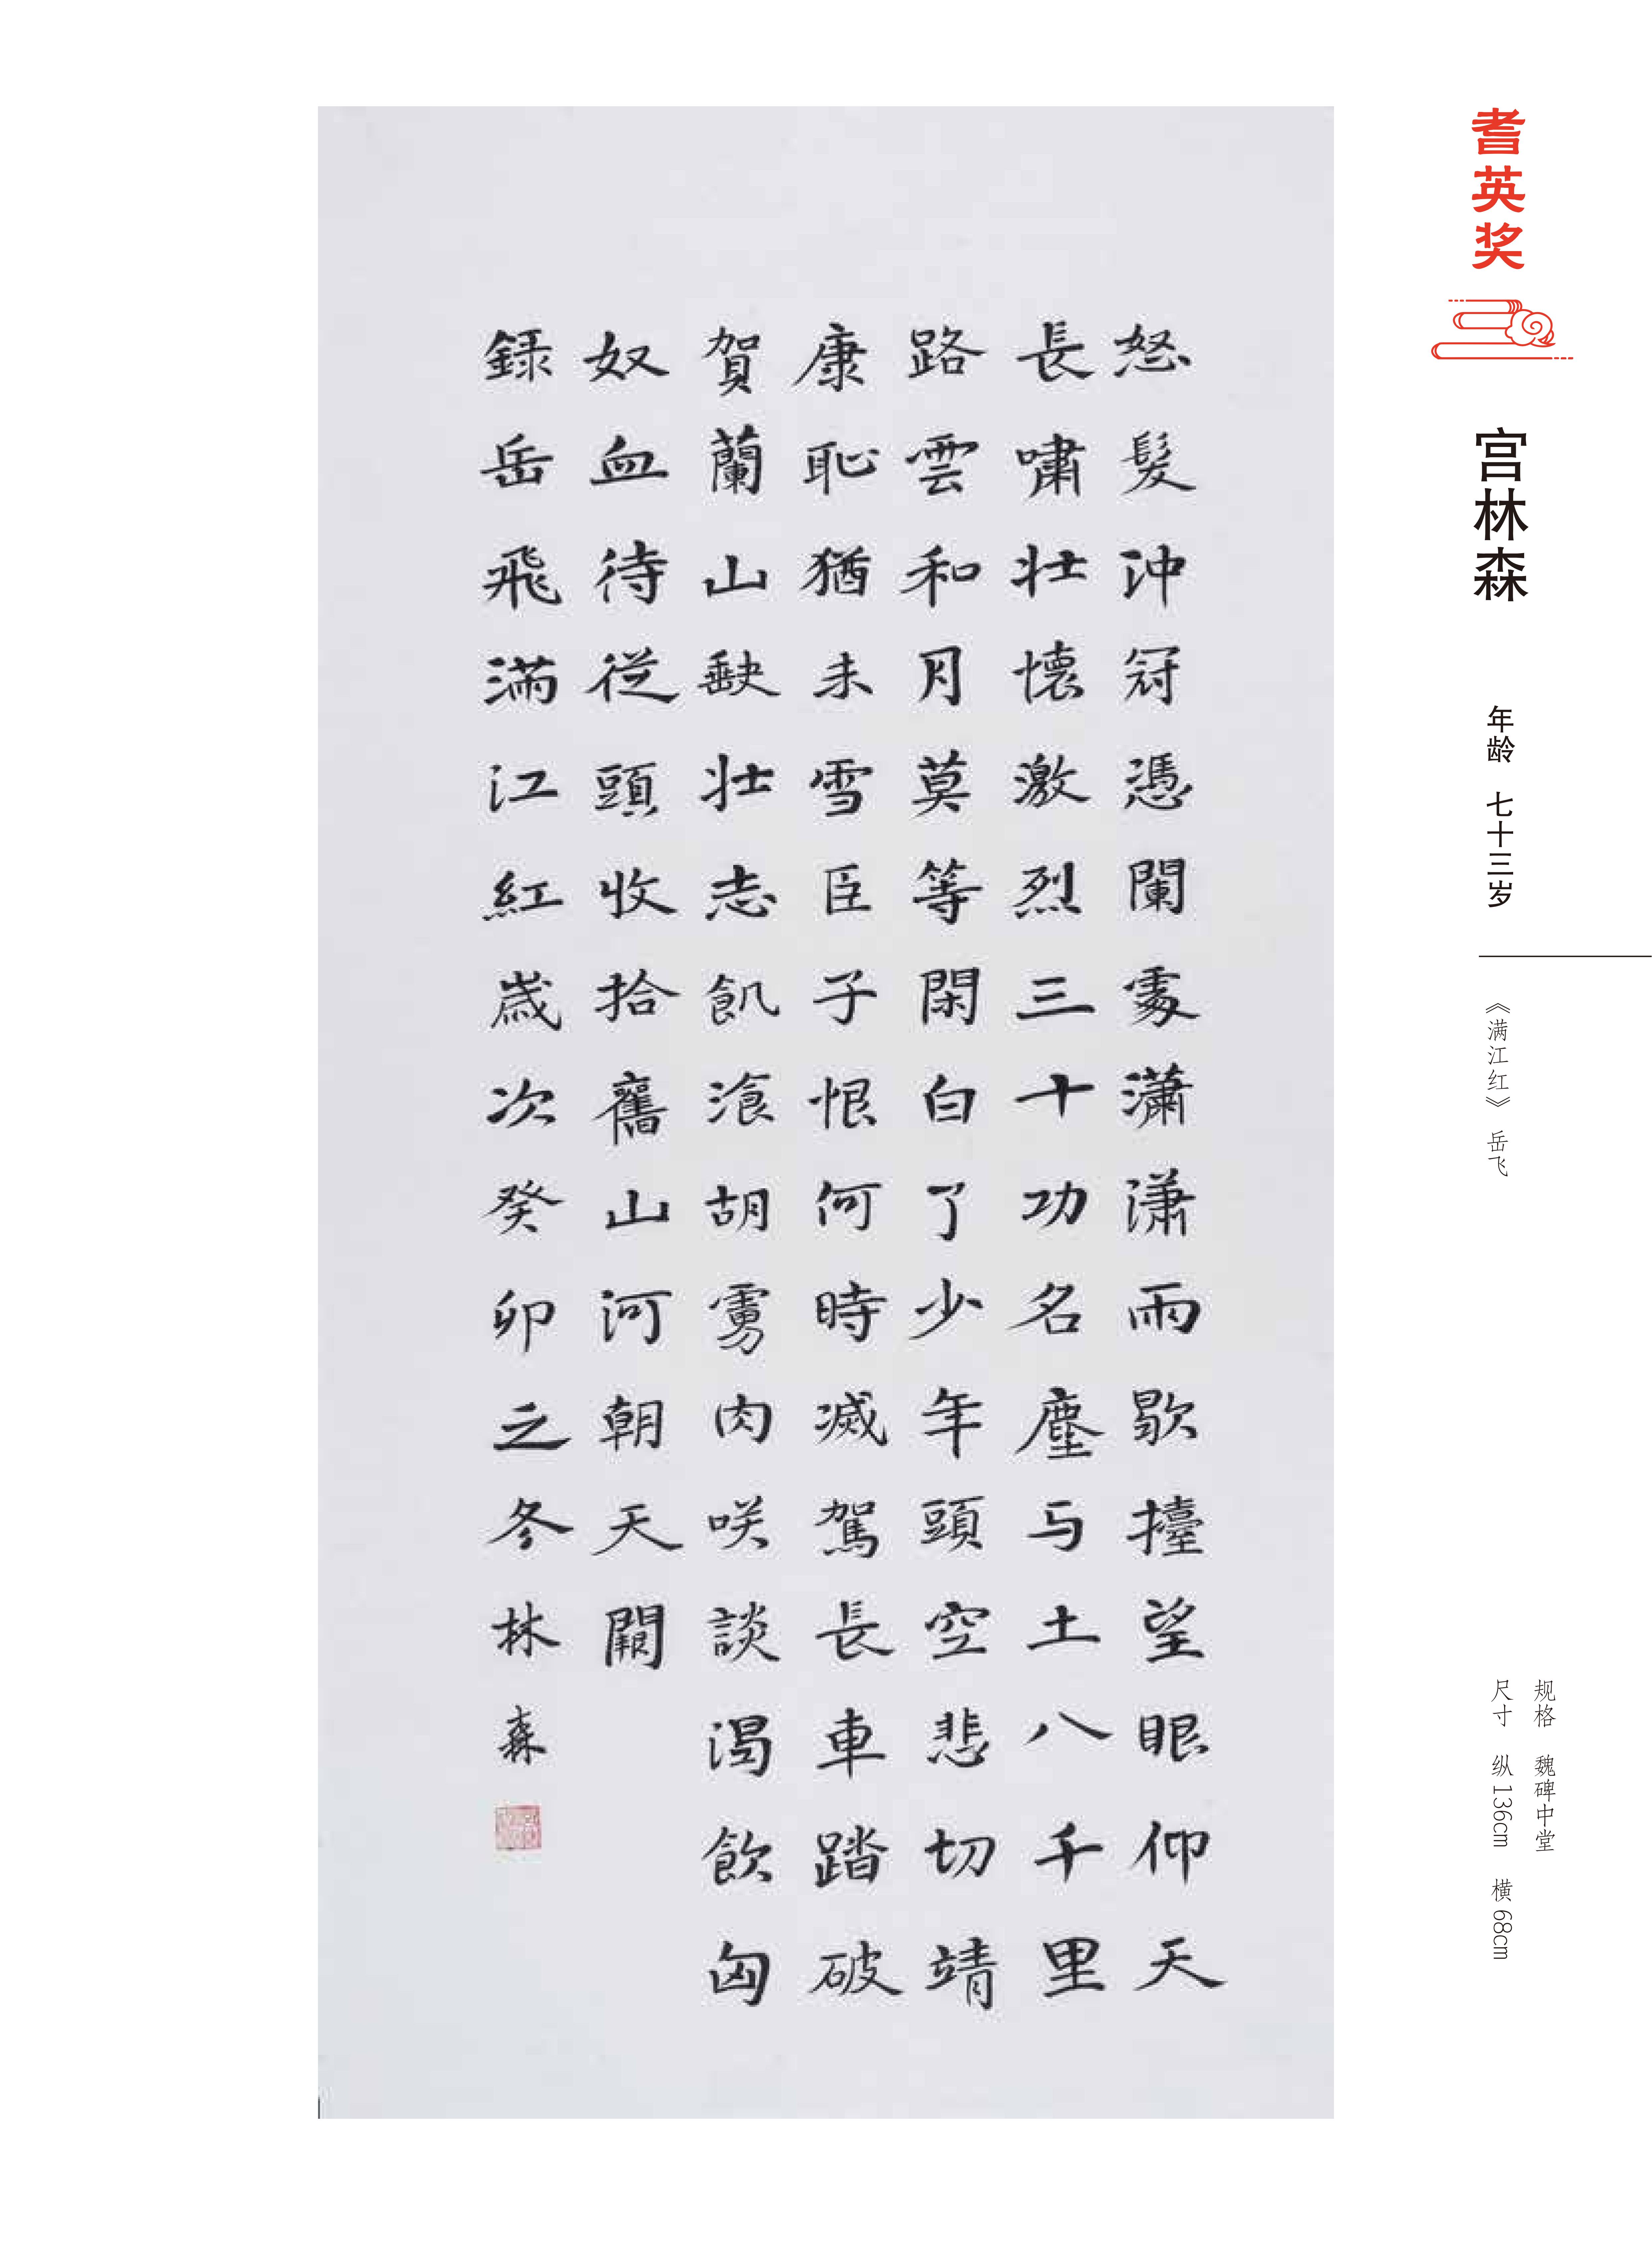 耆英奖
宫林森
年龄 七十三岁
《满江红》 岳飞
规格 魏碑中堂
尺寸 纵136cm 横68cm
怒髮沖冠憑闌處瀟潇雨歇擡望眼仰天
長嘯壮懷激烈三十功名塵与土八千里
路雲和月莫等閑白了少年頭空悲切靖
康恥猶未雪臣子恨何時滅駕長車踏破
賀蘭山缺壮志飢飡胡虜肉咲談渴飲匈
奴血待從頭收拾舊山河朝天闕
録岳飛滿江紅歲次癸卯之冬林森